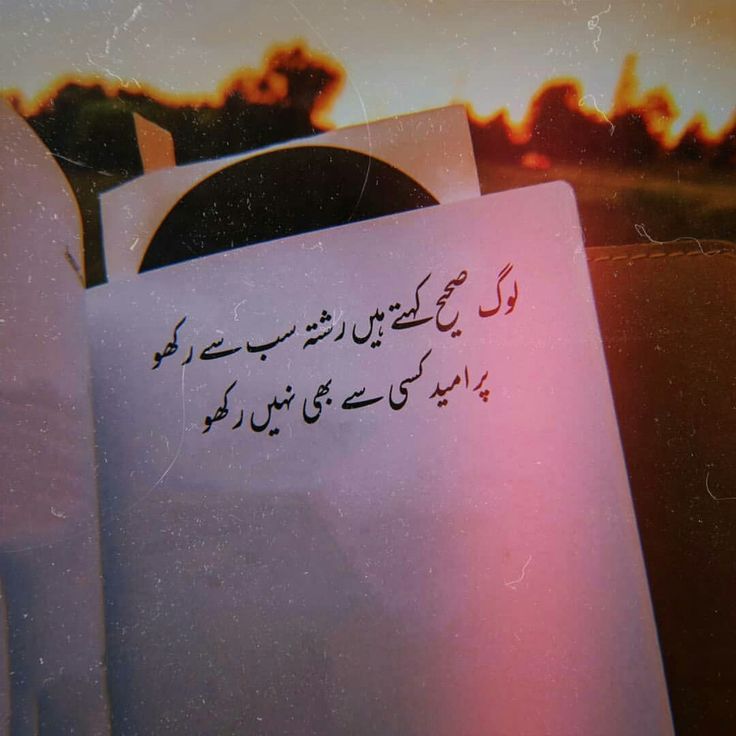 لوگ صحیح کہتے ہیں رشتہ سب سے رکھو
پر امید کسی سے بھی نہیں رکھو